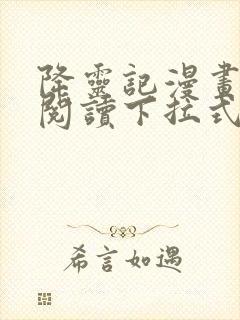 降靈記漫畫
閱讀下拉式
希言如遇